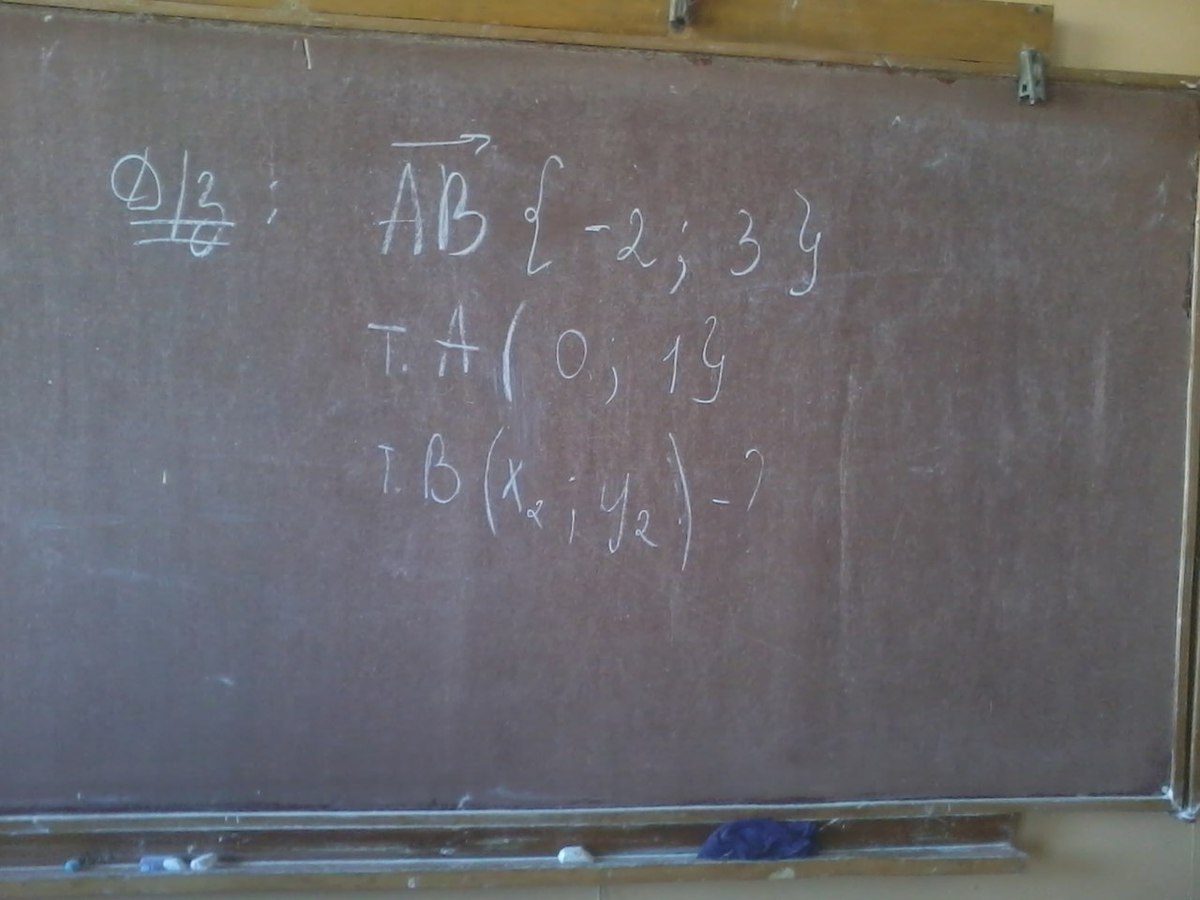 Д/з: AB { -2; 3 }
т. A ( 0; 1 }
т. B (x₂; y₂) - ?